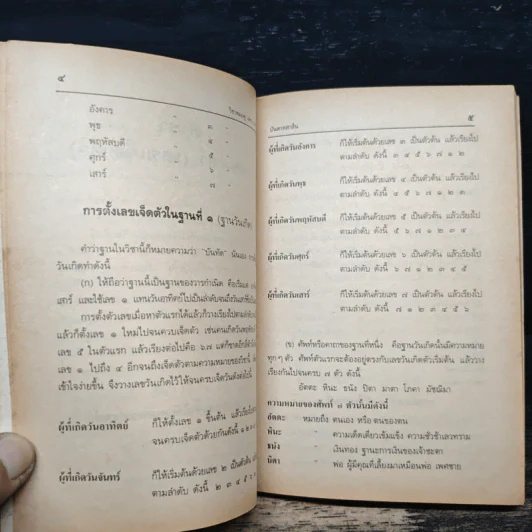 ๔
อังคาร " ๓ "
พุธ " ๔ "
พฤหัสบดี " ๕ "
ศุกร์ " ๖ "
เสาร์ " ๗ "
การตั้งเลขเจ็ดตัวในฐานที่ ๑ (ฐานวันเกิด)
คำว่าฐานในวิชานี้ก็หมายความว่า "บันทัด" นั่นเอง
วันเกิดทำดังนี้
(ก) ให้ถือว่าฐานนี้เป็นฐานของวารกำเนิด คือเริ่มแต่
เสาร์ และใช้เลข ๑ แทนวันอาทิตย์ไปเป็นลำดับจนถึงวันเสาร์
การตั้งตัวเลขเมื่อหาตัวแรกได้แล้วก็วางเรียงไปตามลำดับ
แล้วก็ตั้งเลข ๑ ใหม่ไปจนครบเจ็ดตัว เช่นคนเกิดวันพฤหัส
เลข ๕ ในตัวแรก แล้วเรียงต่อไปคือ ๖.๗ แต่ก็ขาดอีก
เลข ๑ ไปถึง ๔ อีกจนถึงเจ็ดตัวตามความหมายของวิชานี้
เข้าใจง่ายขึ้น จึงวางเลขวันเกิดไว้ให้จนครบเจ็ดวันดังต่อไปนี้
ผู้ที่เกิดวันอาทิตย์ ก็ให้ตั้งเลข ๑ ขึ้นต้น แล้วเรียงไป
จนครบเจ็ดตัวด้วยกันดังนี้ ๑ ๒ ๓
ผู้ที่เกิดวันจันทร์ ก็ให้เริ่มต้นด้วยเลข ๒ เป็นตัวต้น
ตามลำดับ ดังนี้ ๒ ๓ ๔ ๕
๕
ผู้ที่เกิดวันอังคาร ก็ให้เริ่มต้นด้วยเลข ๓ เป็นตัวต้น แล้วเรียงไป
ตามลำดับ ดังนี้ ๓ ๔ ๕ ๖ ๗ ๑ ๒
ผู้ที่เกิดวันพุธ ก็ให้เริ่มต้นด้วยเลข ๔ เป็นตัวต้น แล้วเรียงไป
ตามลำดับ ดังนี้ ๔ ๕ ๖ ๗ ๑ ๒ ๓
ผู้ที่เกิดวันพฤหัสบดี ก็ให้เริ่มต้นด้วยเลข ๕ เป็นตัวต้น แล้วเรียงไป
ตามลำดับ ดังนี้ ๕ ๖ ๗ ๑ ๒ ๓ ๔
ผู้ที่เกิดวันศุกร์ ก็ให้เริ่มต้นด้วยเลข ๖ เป็นตัวต้น แล้วเรียงไป
ตามลำดับ ดังนี้ ๖ ๗ ๑ ๒ ๓ ๔ ๕
ผู้ที่เกิดวันเสาร์ ก็ให้เริ่มต้นด้วยเลข ๗ เป็นตัวต้น แล้วเรียงไป
ตามลำดับ ดังนี้ ๗ ๑ ๒ ๓ ๔ ๕ ๖
(ข) ศัพท์หรือคาถาของฐานที่หนึ่ง คือฐานวันเกิดนั้นมีความหมาย
ทุก ๆ ตัว ศัพท์ตัวแรกจะต้องอยู่ตรงกับเลขวันเกิดตัวเริ่มต้น แล้ววาง
เรียงกันไปจนครบ ๗ ตัว ดังนี้
อัตตะ หินะ ธนัง ปิตา มาตา โภคา มัชฌิมา
ความหมายของศัพท์ ๗ ตัวนั้นมีดังนี้
อัตตะ หมายถึง ตนเอง หรือ ตนของตน
หินะ " ความเด็ดเดี่ยวเข้มแข็ง ความชั่วช้าเลวทราม
ธนัง " เงินทอง ฐานะการเงินของเจ้าชะตา
ปิตา " พ่อ ผู้มีคุณที่เลี้ยงมาเหมือนพ่อ เพศชาย